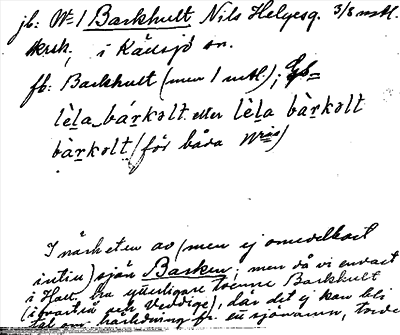 jb: No 1 Barkhult Nils Helgesg. 3/8 mtl.
krsk, i Källsjö sn.
fb: Barkhult (men 1 mtl.);
lèḻa bárkolt eller lèḻa bàrkolt
bàrkolt (för båda
I närheten av (men ej omedelbart
intill) sjön Barken; men då vi endast
i Hall. ha ytterligare tvenne Barkhult
(i och Veddige), där det ej kan bli
tal om härledning fr. ett sjönamn, torde